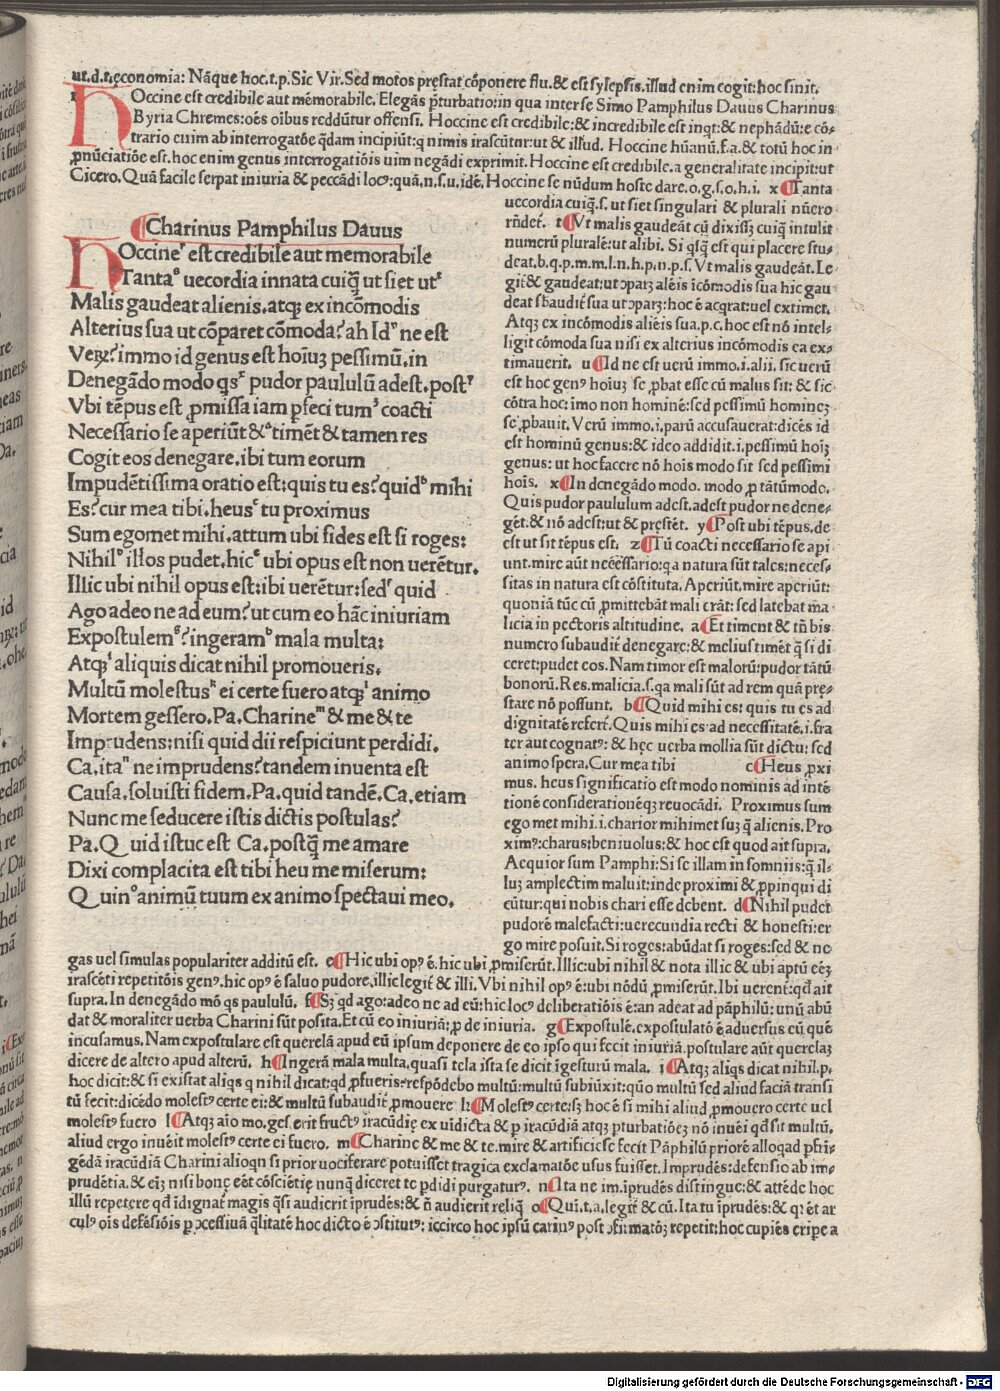 ut.d.t.œconomia: Nāque hoc.t.p.Sic Vir.Sed motos pręstat cōponere flu.& est syleptis.illud enim cogit:hoc sinit.
HOccine est credibile aut memorabile. Elegās pturbatio:in qua inter se Simo Pamphilus Dauus Charinus
Byria Chremes:oēs oibus reddūtur offensi. Hoccine est credibile:& incredibile est inqt:& nephādū:e cō
trario enim ab interrogatōe qdam incipiūt:q nimis irascūtur:ut & illud. Hoccine hūanū.f.a.& totū hoc in
pnūciatiōe est.hoc enim genus interrogatiōis uim negādi exprimit. Hoccine est credibile.a generalitate incipit:ut
Cicero. Quā facile serpat iniuria & peccādi locꝰ:quā.n.s.u.idē. Hoccine se nūdum hoste dare.o.g.s.o.h.i. x Tanta
Charinus Pamphilus Dauus
HOccineʳ est credibile aut memorabile
Tantaˢ uecordia innata cuiq̄ ut siet utᵗ
Malis gaudeat alienis.atqȝ ex incōmodis
Alterius sua ut cōparet cōmoda?ah Idᵘ ne est
Veȝ?immo id genus est hoīuȝ pessimū.in
Denegādo modo qsˣ pudor paululū adest.postʸ
Vbi tēpus est pmissa iam pfeci tumᶻ coacti
Necessario se aperiūt &ᵃ timēt & tamen res
Cogit eos denegare.ibi tum eorum
Impudētissima oratio est:quis tu es?quidᵇ mihi
Es?cur mea tibi.heusᶜ tu proximus
Sum egomet mihi.attum ubi fides est si roges:
Nihilᵈ illos pudet.hicᵉ ubi opus est non uerētur.
Illic ubi nihil opus est:ibi uerētur:sedᶠ quid
Ago adeo ne ad eum?ut cum eo hāc iniuriam
Expostulemᵍ?ingeramʰ mala multa:
Atqȝⁱ aliquis dicat nihil promoueris.
Multū molestusᵏ ei certe fuero atqȝˡ animo
Mortem gessero.Pa.Charineᵐ & me & te
Imprudens:nisi quid dii respiciunt perdidi.
Ca.itaⁿ ne imprudens?tandem inuenta est
Causa.soluisti fidem.Pa.quid tandē.Ca.etiam
Nunc me seducere istis dictis postulas?
Pa.Quid istuc est Ca.postq̄ me amare
Dixi complacita est tibi heu me miserum:
Quinᵒ animū tuum ex animo spectaui meo.
uecordia cuiq.s. ut siet singulari & plurali nūero
rn̄det. t Vt malis gaudeat cū dixisȝ cuiq intulit
numerū plurale:ut alibi. Si qsq est qui placere stu
deat.b.q.p.m.m.l.n.h.p.n.p.s. Vt malis gaudeāt. Le
git & gaudeat:ut ↄparȝ aleis icōmodis sua hic gau
deat sbaudit sua ut ↄparȝ:hoc ē acqrat:uel extimet.
Atqȝ ex incōmodis alieis sua.p.c.hoc est nō intel
ligit cōmoda sua nisi ex alterius incōmodis ea ex
timauerit. u Id ne est uerū immo.i.alii. sic uerū
est hoc genꝰ hoiuȝ se pbat esse cū malus sit: & sic
cōtra hoc:imo non hominē:sed pessimū hominez
se pbauit. Verū immo.i.parū accusauerat:dicēs id
est hominū genus:& ideo addidit.i.pessimū hoiȝ
genus: ut hoc facere nō hois modo sit sed pessimi
hois. x In denegādo modo. modo p tātūmodo.
Quis pudor paululum adest.adest pudor ne dene
get.& nō adest:ut & prestet. y Post ubi tēpus.de
est ut sit tēpus est. z Tū coacti necessario se api
unt.mire aūt necessario:qa natura sūt tales:neces
sitas in natura est cōstituta. Aperiūt.mire aperiūt:
quoniā tūc cū pmittebāt mali erāt: sed latebat ma
licia in pectoris altitudine. a Et timent & tn̄ bis
numero subaudit denegare:& melius timēt q si di
ceret:pudet eos. Nam timor est malorū:pudor tātū
bonorū. Res.malicia.s.qa mali sūt ad rem quā prę
stare nō possunt. b Quid mihi es: quis tu es ad
dignitatē refert. Quis mihi es ad necessitatē.i.fra
ter aut cognatꝰ: & hęc uerba mollia sūt dictu: sed
animo spera. Cur mea tibi c Heus pxi
mus. heus significatio est modo nominis ad intē
tionē considerationēqȝ reuocādi. Proximus sum
ego met mihi.i.charior mihimet suȝ q alienis. Pro
ximꝰ:charus:beniuolus:& hoc est quod ait supra.
Aequior sum Pamphi:Si se illam in somniis:q il
luȝ amplecti maluit:inde proximi & ppinqui di
cūtur:qui nobis chari esse debent. d Nihil pudet
pudorē malefacti:uerecundia recti & honesti:er
go mire posuit. Si roges:abūdat si roges:sed & ne
gas uel simulas populariter additū est. e Hic ubi opꝰ ē.hic ubi pmiserūt. Illic:ubi nihil & nota illic & ubi aptū eeȝ
irascēti repetitōis genꝰ.hic opꝰ ē saluo pudore.illic legit & illi. Vbi nihil opꝰ ē:ubi nōdū pmiserūt. Ibi uerent:qd ait
supra. In denegādo mō qs paululū. f Sȝ qd ago:adeo ne ad eū:hic locꝰ deliberatiōis ē:an adeat ad pāphilū:unū abū
dat & moraliter uerba Charini sūt posita. Et cū eo iniuriā:p de iniuria. g Expostulē.expostulatō ē aduersus eū quē
incusamus. Nam expostulare est querelā apud eū ipsum deponere de eo ipso qui fecit iniuriā.postulare aūt querelaȝ
dicere de altero apud alterū. h Ingerā mala multa.quasi tela ista se dicit īgesturū mala. i Atqȝ aliqs dicat nihil.p.
hoc dicit:& si existat aliqs q nihil dicat:qd pfueris:respōdebo multū:multū subiūxit:quo multū sed aliud faciā transi
tū fecit:dicēdo molestꝰ certe ei:& multū subaudit pmouere k Molestꝰ certe:sȝ hoc ē si mihi aliud pmouero certe uel
molestꝰ fuero l Atqȝ aīo mo.ges.erit fructꝰ iracūdię ex uīdicta & p iracūdiā atqȝ pturbatiōeȝ nō inuēi qd sit multū.
aliud ergo inuēit molestꝰ certe ei fuero. m Charine & me & te.mire & artificiose fecit Pāphilū priorē alloqad pfri
gēdā iracūdiā Charini alioqn si prior uociferare potuisset tragica exclamatōe usus fuisset. Imprudēs:defensio ab im
prudētia.& eiȝ nisi bonę eēt cōsciētię nunq diceret te pdidi purgaturꝰ. n Ita ne im.iprudēs distingue:& attēde hoc
illū repetere qd īdignat magis qsi audierit iprudēs:& n̄ audierit reliq. o Qui.t.a.legit & cū. Ita tu iprudēs:& qriēt ar
culꝰ oīs defēsiōis p ↄcessiuā qlitatē hoc dicto ē ↄstitutꝰ: iccirco hoc ipsū carinꝰ post ↄfirmatōȝ repetit:hoc cupiēs eripe a
Digitalisierung gefördert durch die Deutsche Forschungsgemeinschaft - DFG